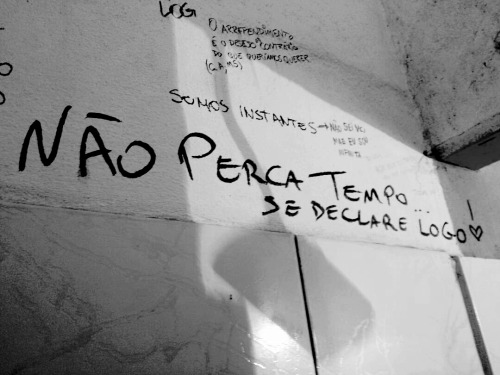 LOG
O ARREPENDIMENTO
É O DESEJO CONTRÁRIO
DO QUE QUERÍAMOS QUERER
SOMOS INSTANTES → NÃO SEI VC,
MAS EU SOU
INFINITA
NÃO PERCA TEMPO...
SE DECLARE LOGO! ♡